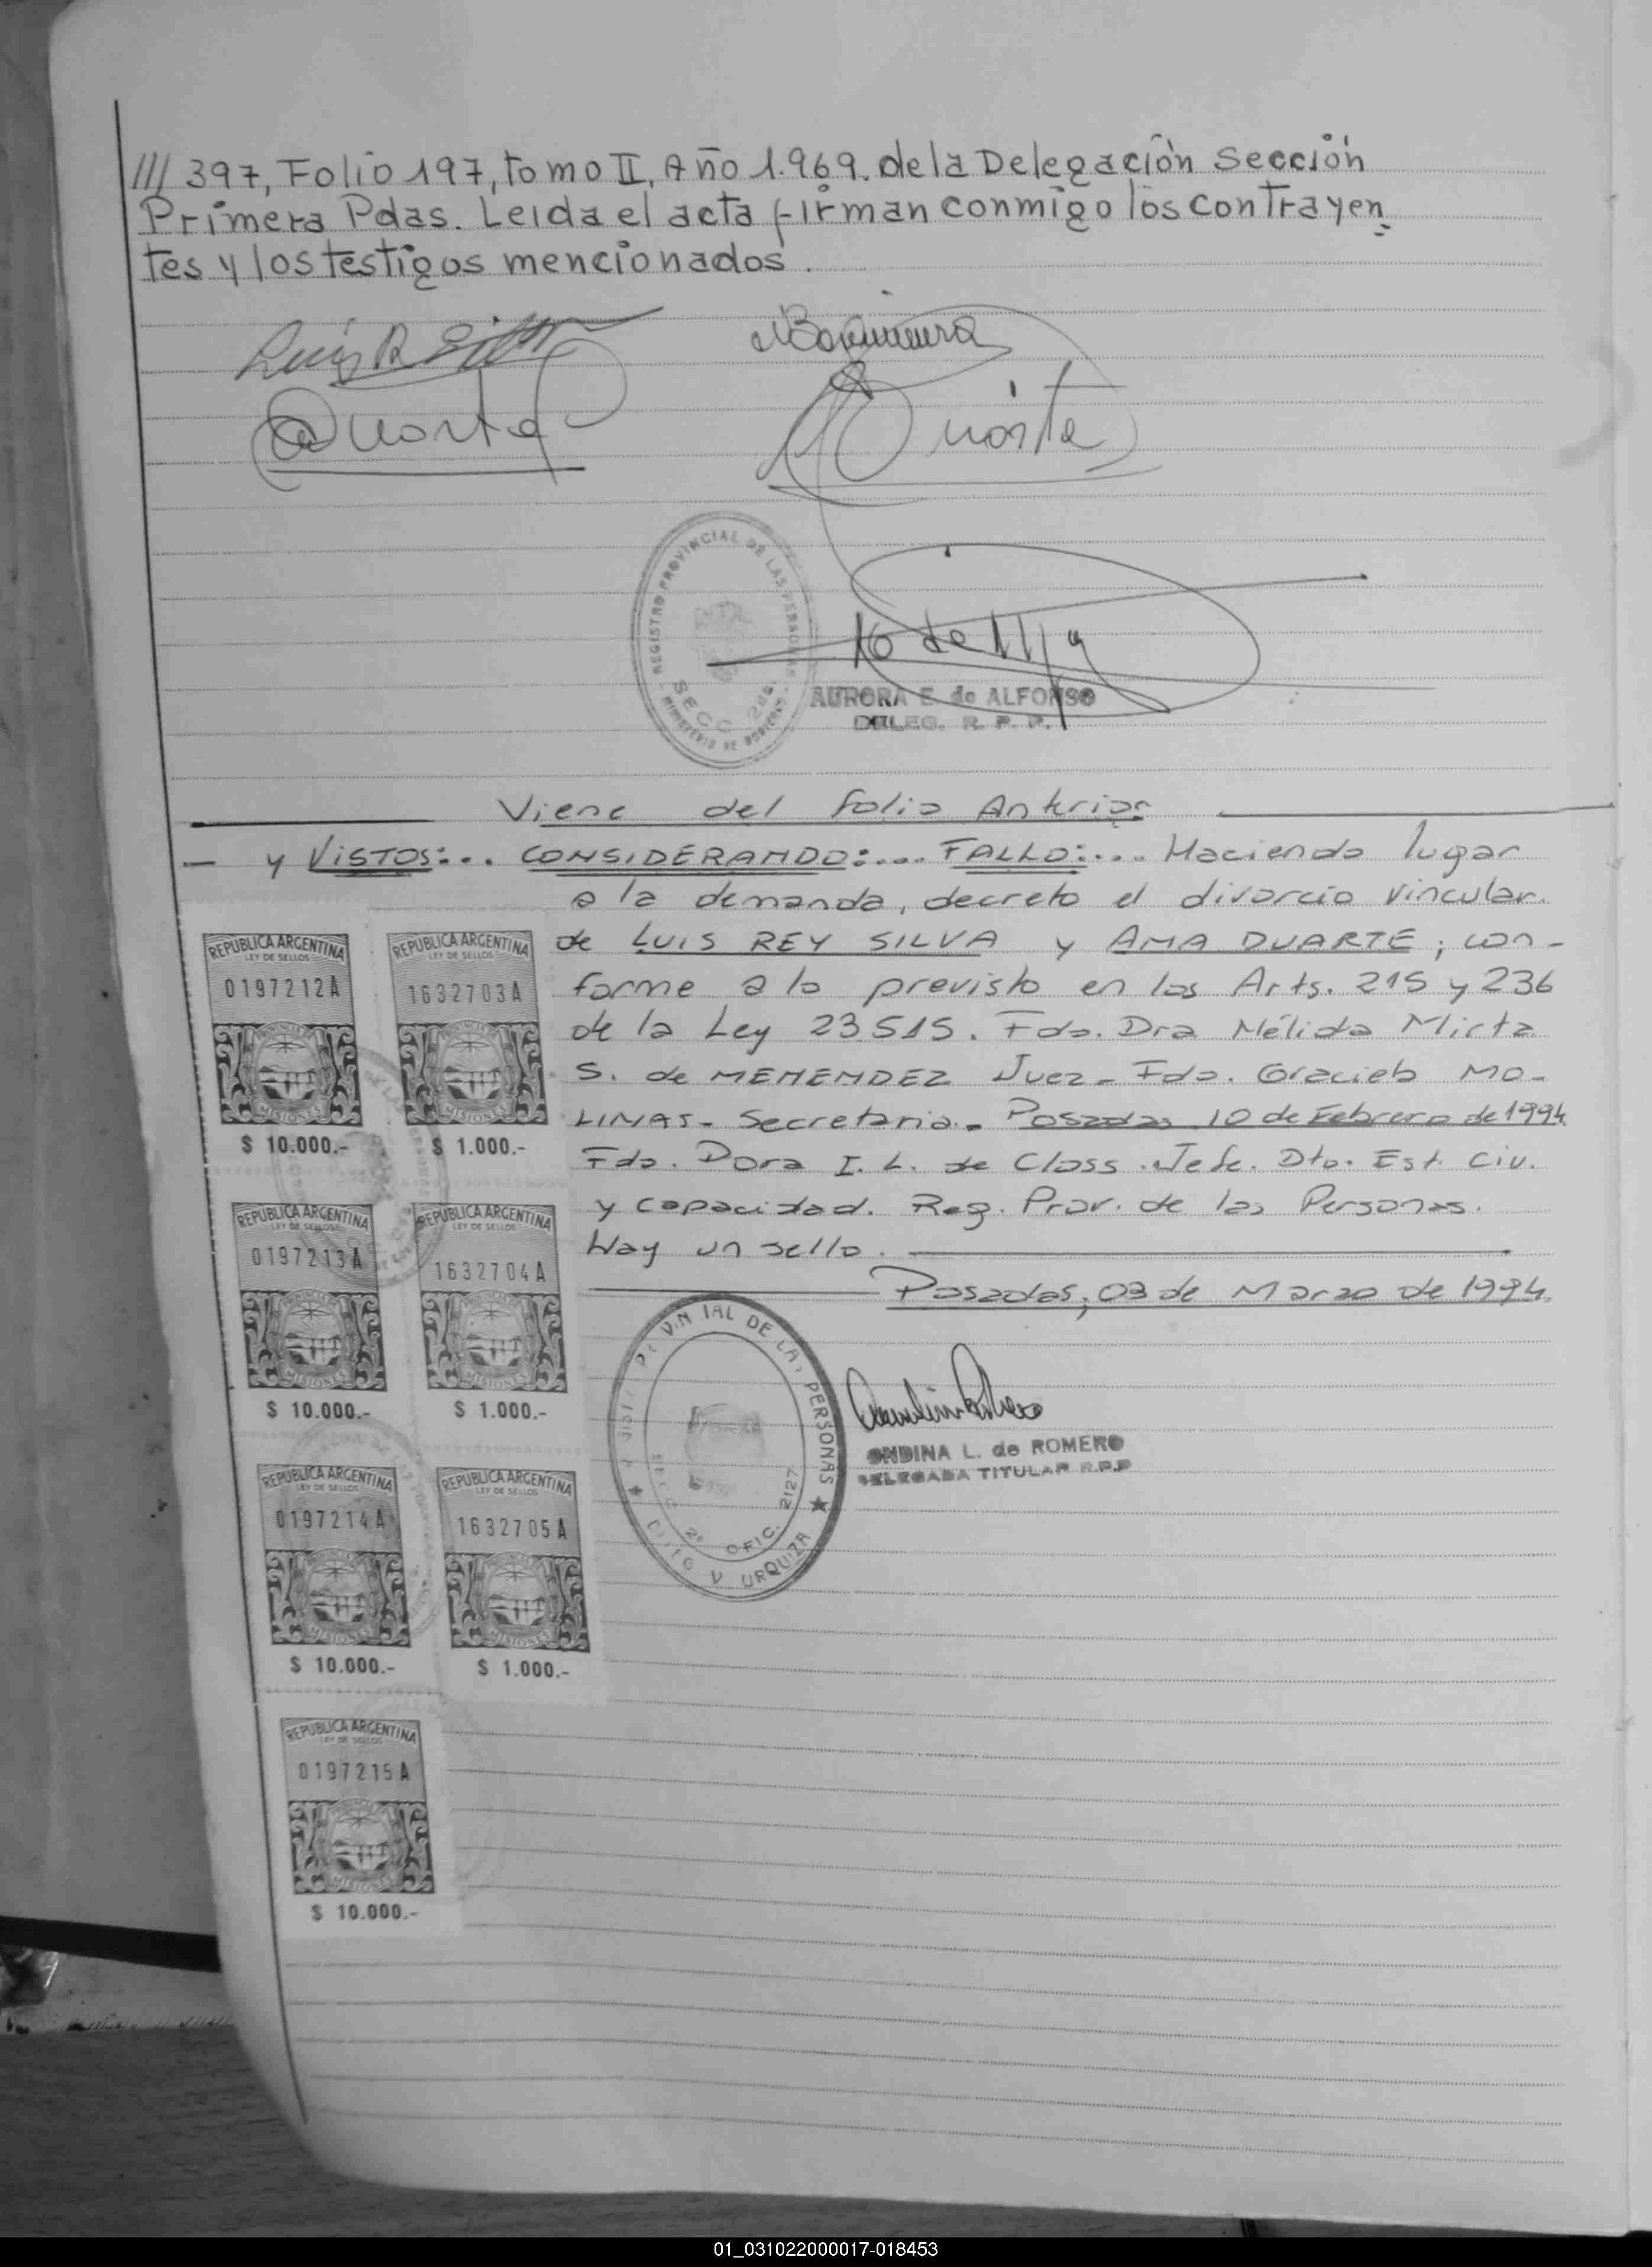 /// 397, Folio 197, tomo II, Año 1.969. de la Delegación Sección
Primera Pdas. Leida el acta firman conmigo los contrayen
tes y los testigos mencionados.
REGISTRO PROVINCIAL DE LAS PERSONAS
SECC. 2da.
MINISTERIO DE GOBIERNO
AURORA E. de ALFONSO
DELEG. R. P. P.
Viene del folio Anterior
— y VISTOS:... CONSIDERANDO:... FALLO:... Haciendo lugar
a la demanda, decreto el divorcio vincular.
de LUIS REY SILVA y ANA DUARTE; con-
forme a lo previsto en los Arts. 215 y 236
de la Ley 23.515. Fdo. Dra Nélida Mirta
S. de MENENDEZ Juez- Fdo. Graciela MO-
LINAS- Secretaria.- Posadas 10 de Febrero de 1994
Fdo. Dora I. L. de Closs. Jefe. Dto. Est. Civ.
y capacidad. Reg. Prov. de las Personas.
Hay un sello.
Posadas, 03 de Marzo de 1994.
REPUBLICA ARGENTINA
LEY DE SELLOS
0197212A
MISIONES
$ 10.000.-
REPUBLICA ARGENTINA
LEY DE SELLOS
1632703A
MISIONES
$ 1.000.-
REPUBLICA ARGENTINA
LEY DE SELLOS
0197213A
MISIONES
$ 10.000.-
REPUBLICA ARGENTINA
LEY DE SELLOS
1632704A
MISIONES
$ 1.000.-
REPUBLICA ARGENTINA
LEY DE SELLOS
0197214A
MISIONES
$ 10.000.-
REPUBLICA ARGENTINA
LEY DE SELLOS
1632705A
MISIONES
$ 1.000.-
REPUBLICA ARGENTINA
LEY DE SELLOS
0197215A
MISIONES
$ 10.000.-
DE LAS PERSONAS
2ª OFIC. 2127
V. URQUIZA
ONDINA L. de ROMERO
DELEGADA TITULAR R.P.P
01_031022000017-018453